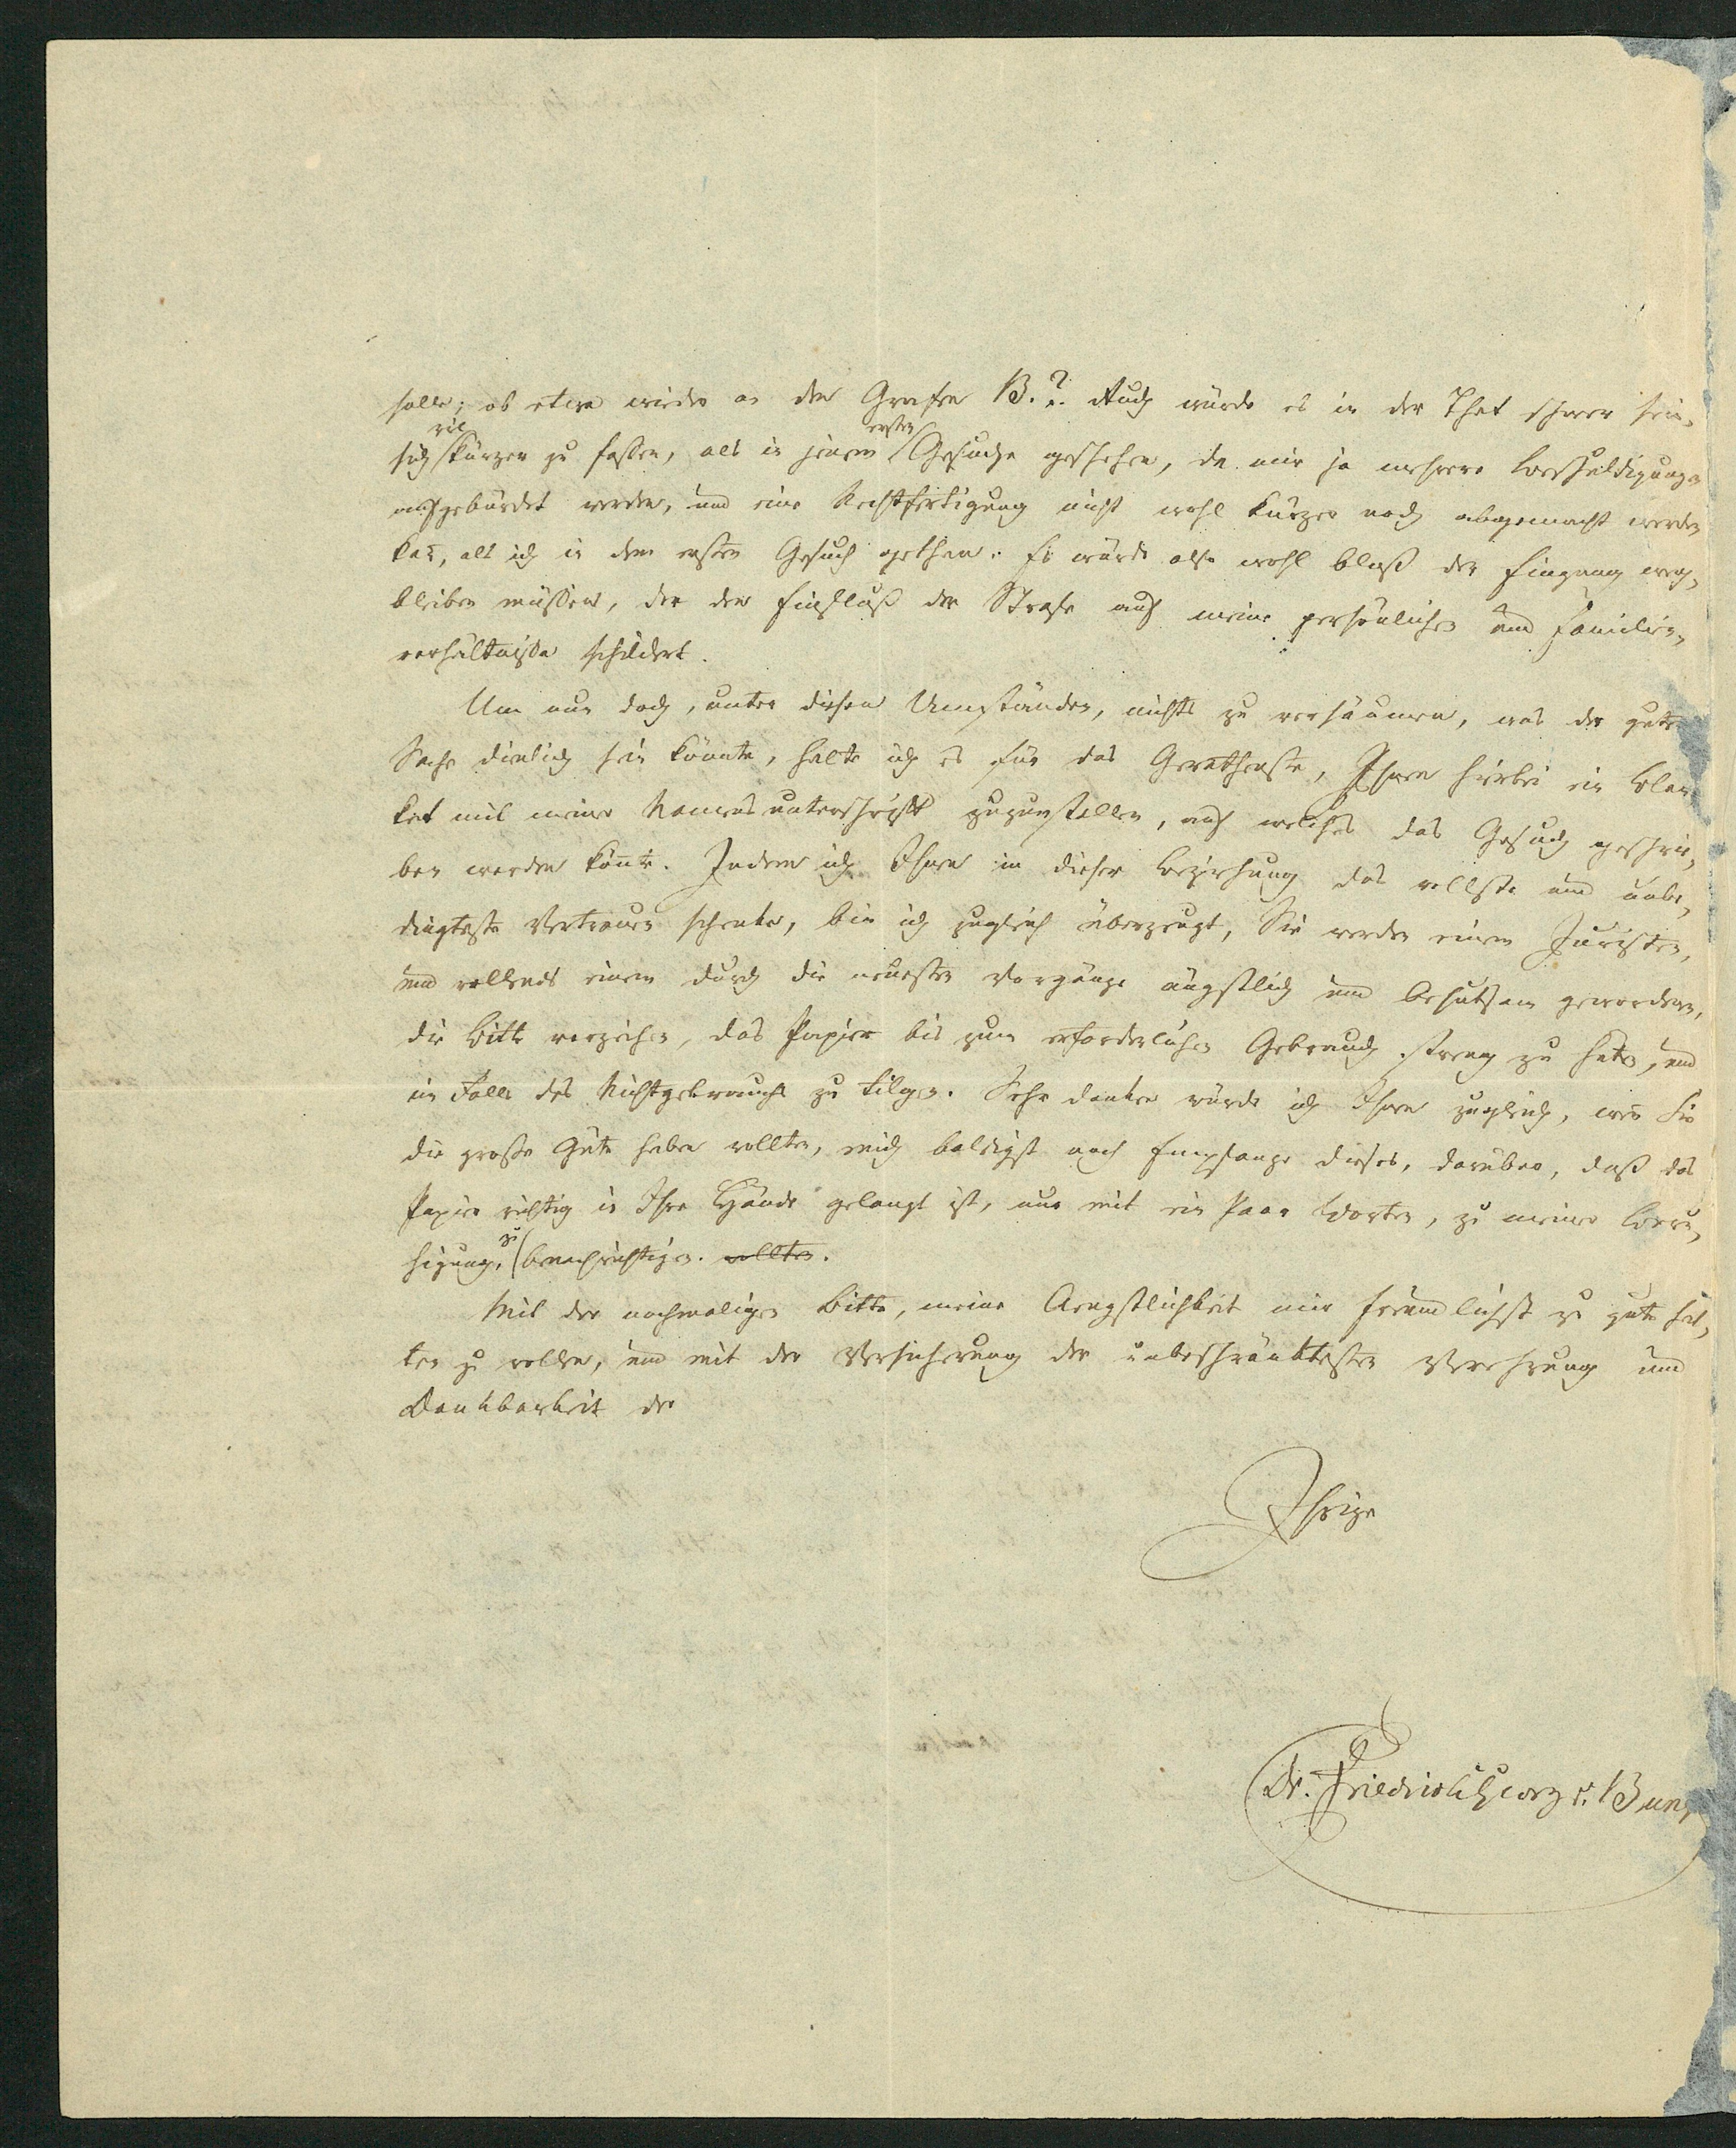 solle; ob etwa wieder an den Grafen B.? Auch würde es in der That schwer sein,
sich viel kürzer zu fassen, als in jenem ersten Gesuche geschehen, da mir ja mehrere Beschuldigungen
aufgebürdet werden, und eine Rechtfertigung nicht wohl kürzer noch abgemacht werden
kan̄, als ich in dem ersten Gesuch gethan. Es würde also wohl bloß der Eingang weg-
bleiben müssen, der den Einfluß der Strafe auf meine persönlichen und Familien-
verhältnisse schildert.
Um nun doch, unter diesen Umständen, nichts zu versäumen, was der guten
Sache dienlich sein könnte, halte ich es für das Gerathenste, Ihnen hierbei ein Blan-
ket mit meiner Namensunterschrift zuzustellen, auf welches das Gesuch geschrie-
ben werden kön̄te. Indem ich Ihnen in dieser Beziehung das vollste und unbe-
dingteste Vertrauen schenke, bin ich zugleich überzeugt, Sie werden einem Juristen,
und vollends einem durch die neuesten Vorgänge ängstlich und behutsam gewordenen,
die Bitte verzeihen, das Papier bis zum erforderlichen Gebrauch streng zu hüten, und
im Falle des Nichtgebrauchs zu tilgen. Sehr danken würde ich Ihnen zugleich, wen̄ Sie
die große Güte haben wollten, mich baldigst nach Empfange dieses, darüber, daß das
Papier richtig in Ihre Hände gelangt ist, nur mit ein Paar Worten, zu meiner Beru-
higung, zu benachrichtigen. wollten.
Mit der nochmaligen Bitte, meine Aengstlichkeit mir freundlichst zu gute hal-
ten zu wollen, und mit der Versicherung der unbeschränktesten Verehrung und
Dankbarkeit der
Ihrige
Dr. Friedrich Georg v. Bunge